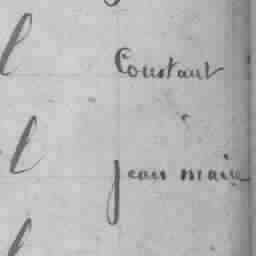 l Constant
l jean marie
l